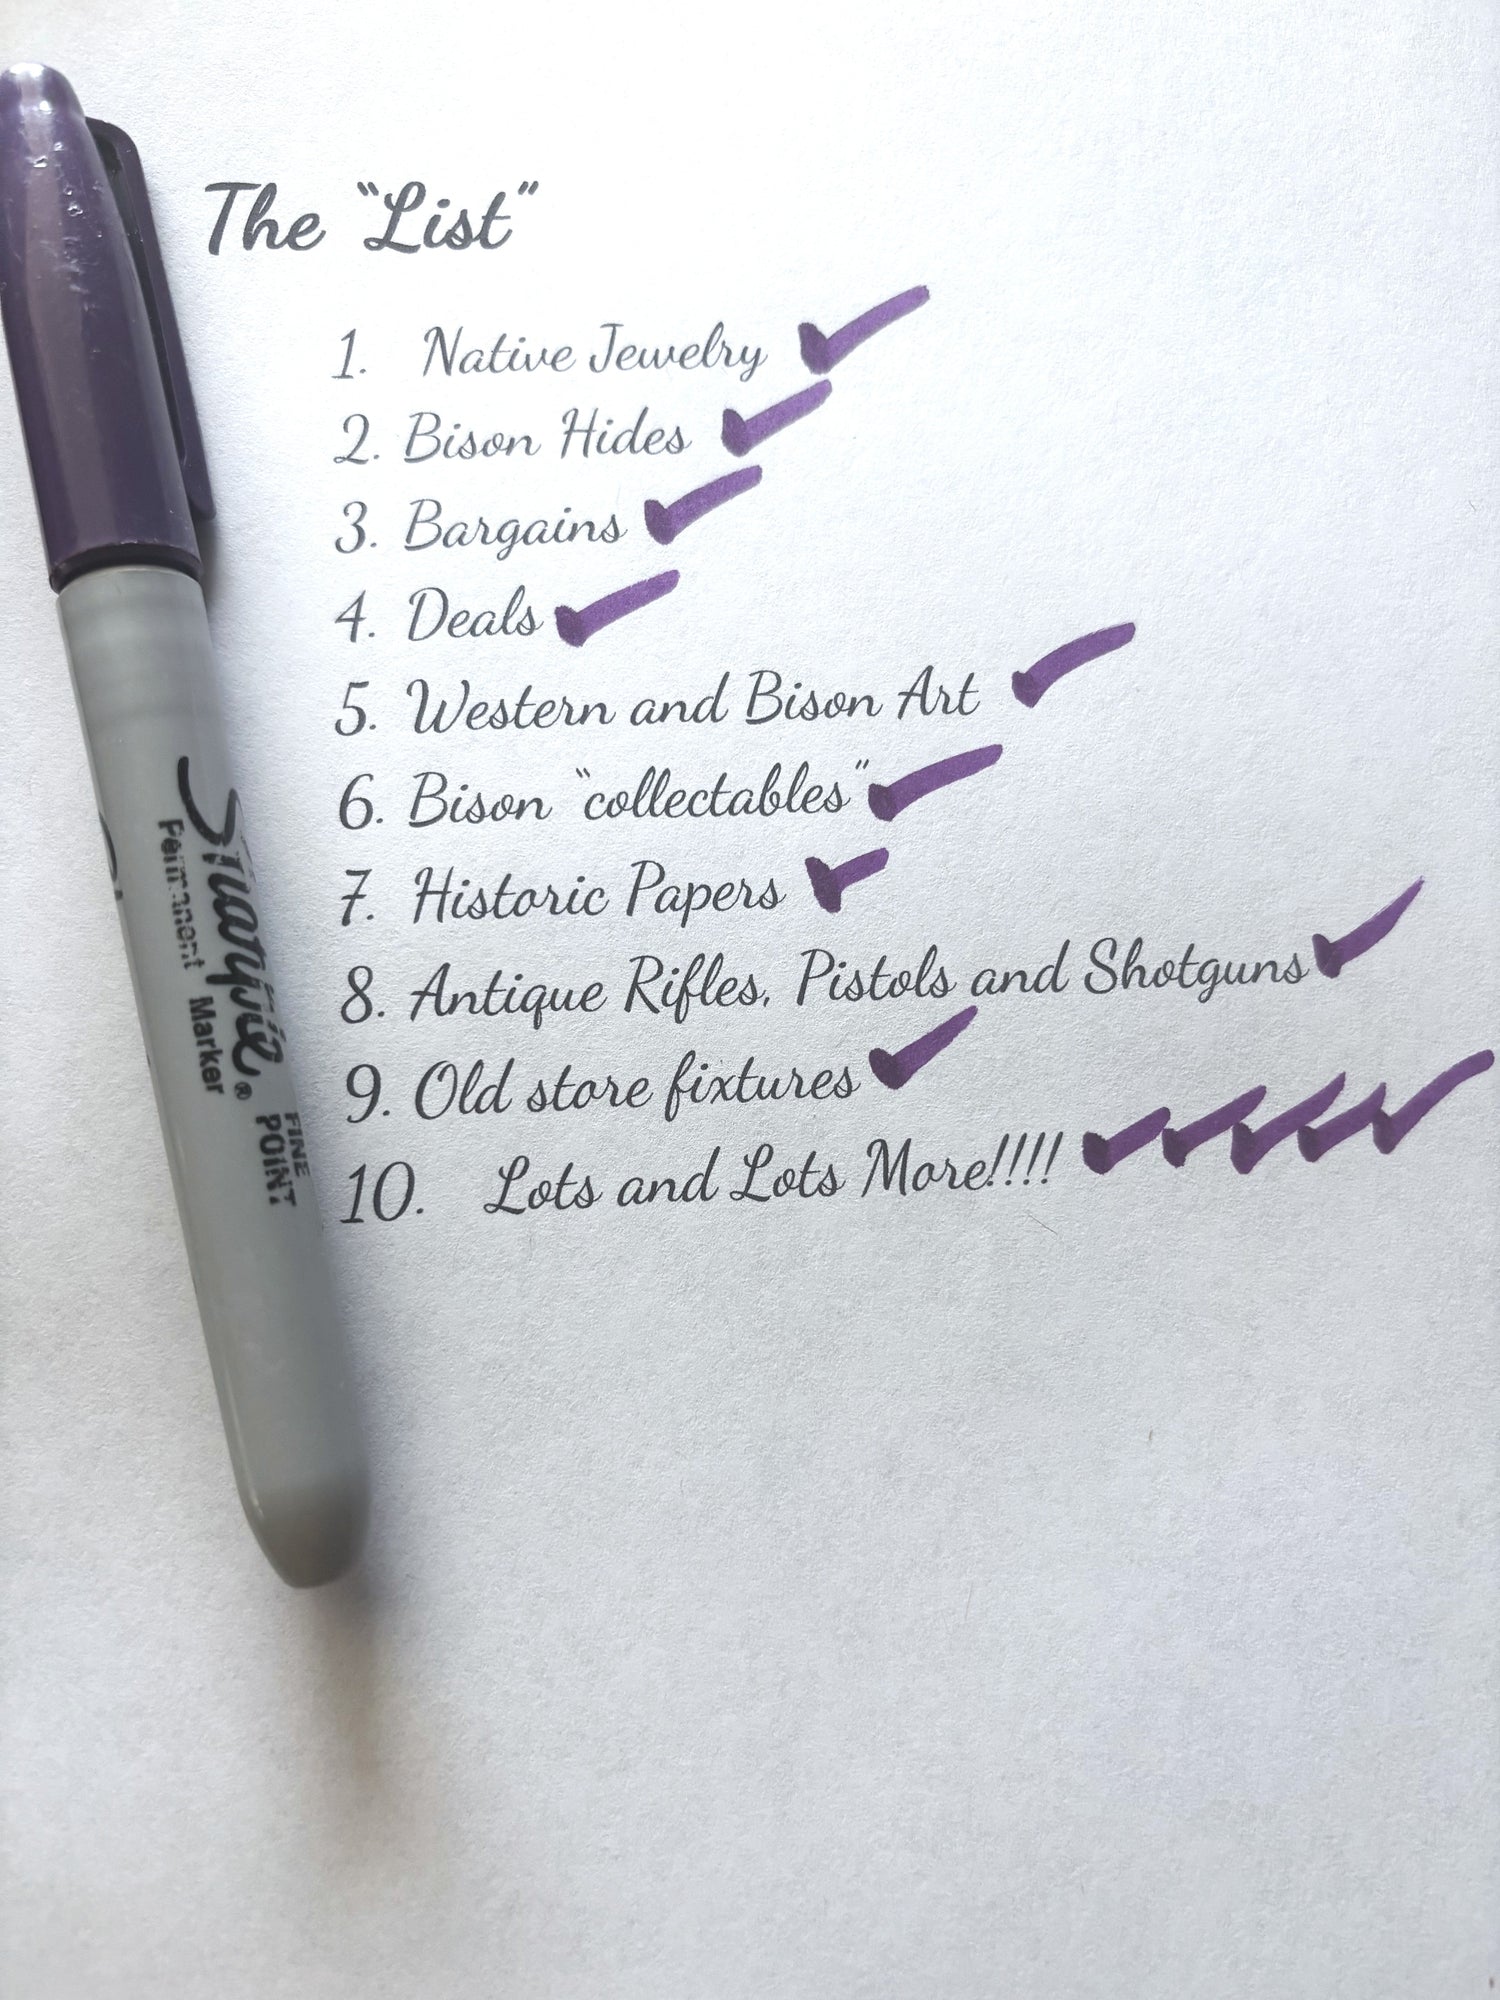 The “List”
1. Native Jewelry
2. Bison Hides
3. Bargains
4. Deals
5. Western and Bison Art
6. Bison “collectables”
7. Historic Papers
8. Antique Rifles, Pistols and Shotguns
9. Old store fixtures
10. Lots and Lots More!!!!
Sharpie®
Permanent Marker
FINE
POINT